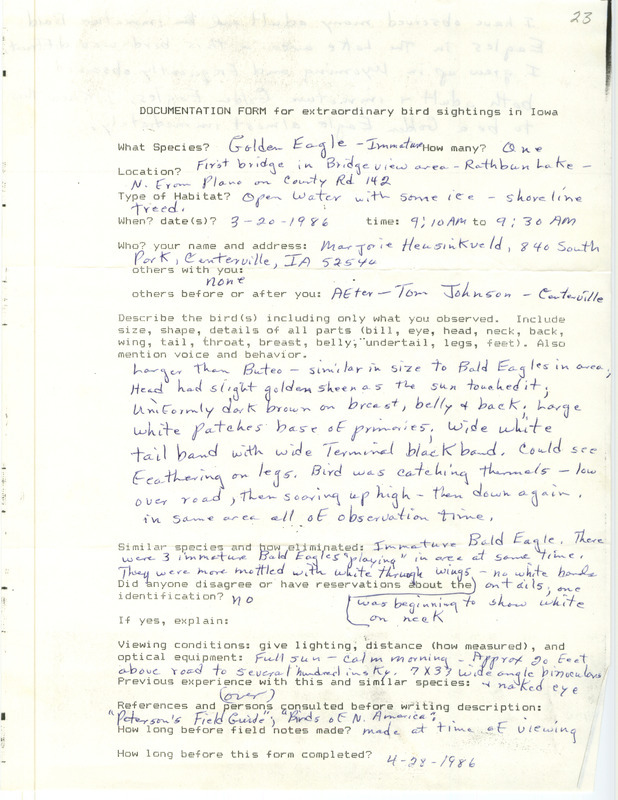 23
DOCUMENTATION FORM for extraordinary bird sightings in Iowa
What Species? Golden Eagle - Immature How many? One
Location? First bridge in Bridgeview area - Rathbun Lake -
N. From Plano on County Rd 142
Type of Habitat? Open Water with some ice - shoreline
treed.
When? date(s)? 3-20-1986 time: 9:10 AM to 9:30 AM
Who? your name and address: Marjorie Heusinkveld, 840 South
Park, Centerville, IA 52544
others with you:
none
others before or after you: After - Tom Johnson - Centerville
Describe the bird(s) including only what you observed. Include
size, shape, details of all parts (bill, eye, head, neck, back,
wing, tail, throat, breast, belly, undertail, legs, feet). Also
mention voice and behavior.
Larger than Buteo - similar in size to Bald Eagles in area;
Head had slight golden sheen as the sun touched it;
Uniformly dark brown on breast, belly & back; Large
white patches base of primaries; wide white
tail band with wide Terminal black band. Could see
feathering on legs. Bird was catching thermals - low
over road, then soaring up high - then down again.
in same area all of observation time.
Similar species and how eliminated: Immature Bald Eagle. There
were 3 immature Bald Eagles "playing" in area at same time.
They were more mottled with white through wings - no white bands
Did anyone disagree or have reservations about the on tails, one
identification? no was beginning to show white
If yes, explain: on neck
Viewing conditions: give lighting, distance (how measured), and
optical equipment: Full sun - calm morning - Approx 20 feet
above road to several hundred in sky. 7X35 wide angle binoculars
Previous experience with this and similar species: + naked eye
(over)
References and persons consulted before writing description:
"Peterson's Field Guide"; "Birds of N. America";
How long before field notes made? made at time of viewing
How long before this form completed? 4-28-1986